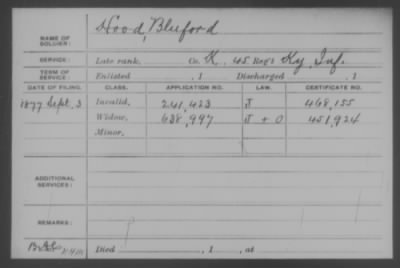 Hood, Bluford
NAME OF SOLDIER:
SERVICE: Late rank, Co. K., 45 Reg't Ky. Inf.
TERM OF SERVICE: Enlisted , 1 Discharged , 1
DATE OF FILING. CLASS. APPLICATION NO. LAW. CERTIFICATE NO.
1877 Sept. 3 Invalid, 241,423 J 468,155
Widow, 638,997 J + O 451,924
Minor,
ADDITIONAL SERVICES:
REMARKS:
Died , 1 , at